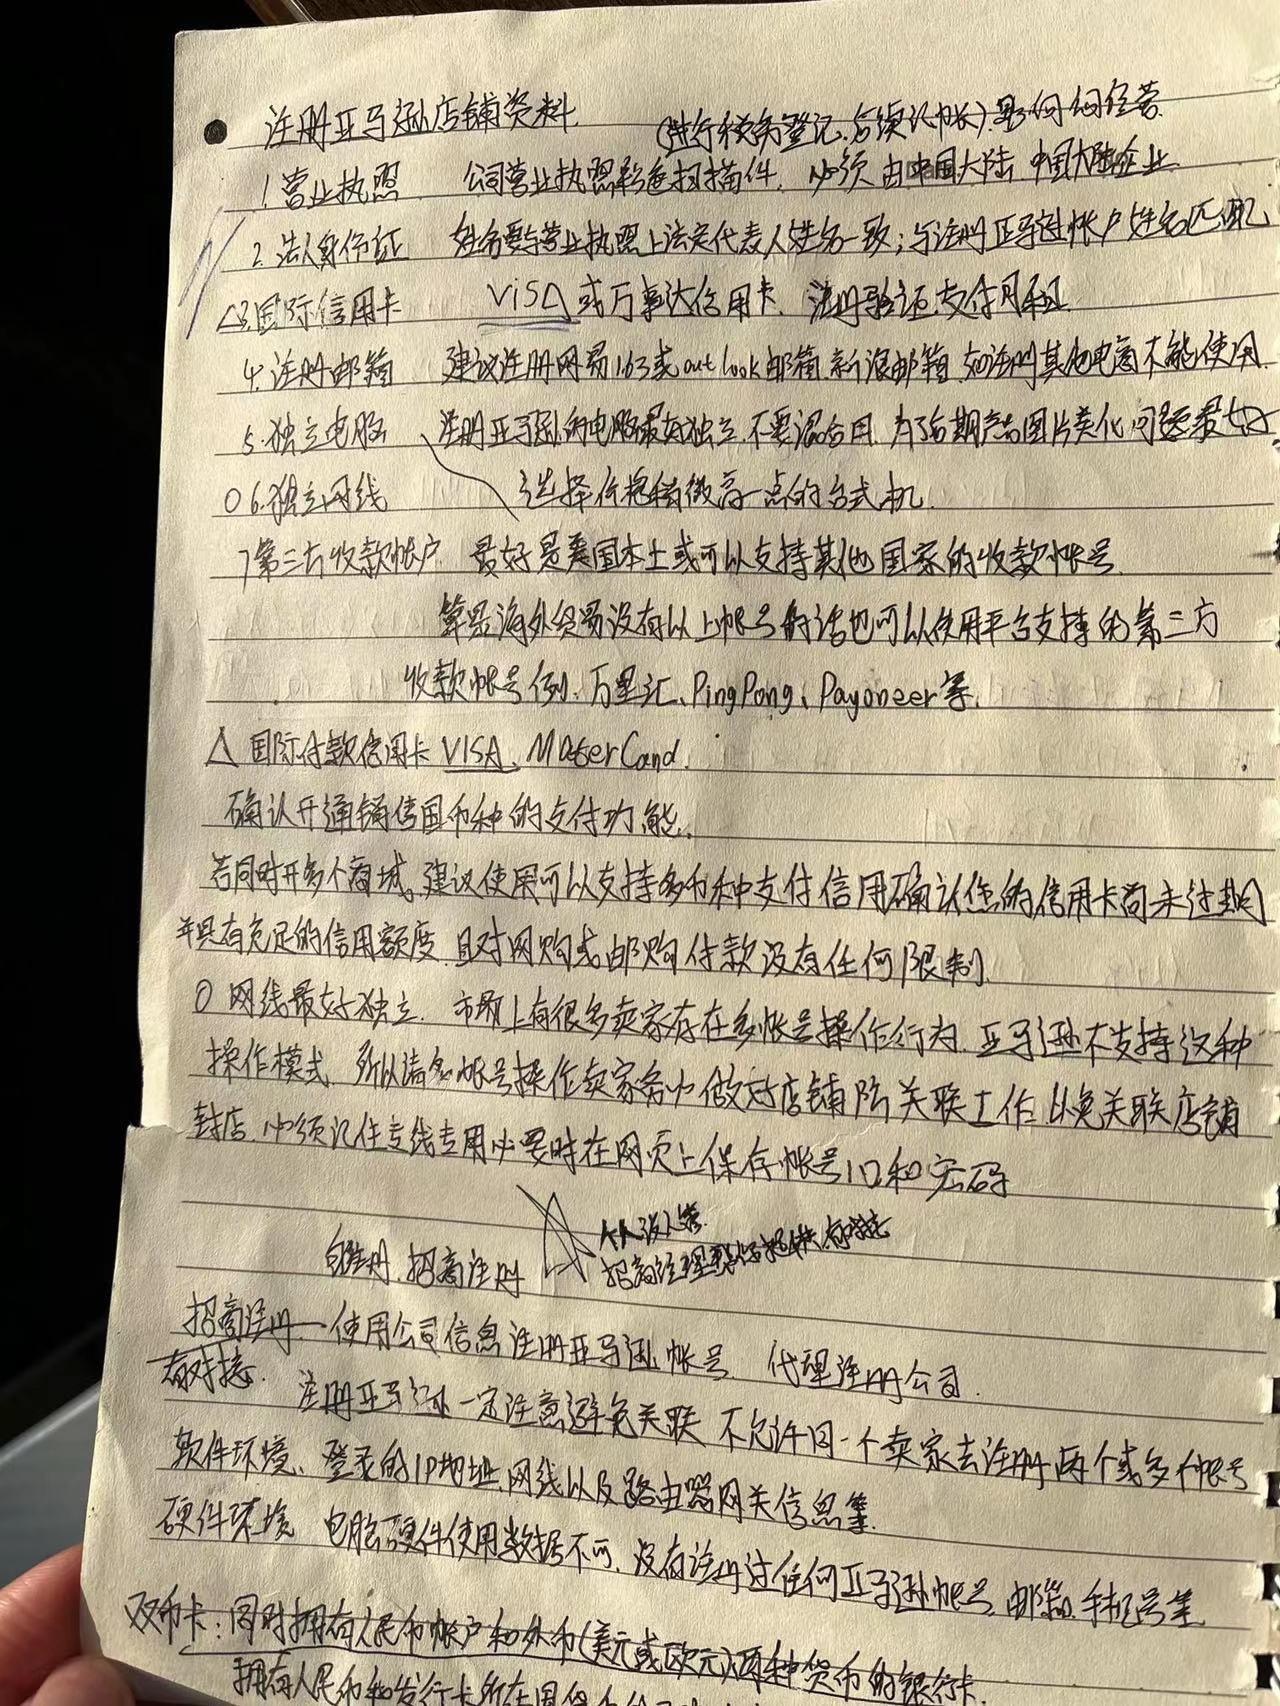 注册亚马逊店铺资料
(进行税务登记、后续记帐).影何何经营.
1.营业执照 公司营业执照彩色扫描件, 必须由中国大陆 中国大陆企业
2.法人身份证 姓名要与营业执照上法定代表人姓名一致;与注册亚马逊帐户姓名匹配
△3.国际信用卡 VISA或万事达信用卡. 注册验证、支付月租
4.注册邮箱 建议注册网易163或outlook邮箱 新浪邮箱.如注册其他电商不能使用.
5.独立电脑 注册亚马逊的电脑最好独立.不要混合用.为了后期产品图片美化问题最好
○6.独立网线 选择价格稍微高一点的台式机.
7第三方收款帐户 最好是美国本土或可以支持其他国家的收款帐号.
算是海外贸易没有以上帐号的话也可以使用平台支持的第三方
收款帐号例:万里汇、PingPong、Payoneer等.
△ 国际付款信用卡 VISA、MaterCand.
确认开通销售国币种的支付功能.
若同时开多个商城.建议使用可以支持多币种支付信用确认您的信用卡尚未过期
并具有充足的信用额度.且对网购或邮购付款没有任何限制.
○ 网线最好独立. 市场上有很多卖家存在多帐号操作行为.亚马逊不支持这种
操作模式 所以请多帐号操作卖家务必做好店铺防关联工作.以免关联店铺
封店.必须记住专线专用必要时在网页上保存帐号口和密码
自注册.招商注册
招商经理
招商注册—使用公司信息注册亚马逊帐号. 代理注册公司.
有对接. 注册亚马逊一定注意避免关联 不允许同一个卖家去注册两个或多个帐号
软件环境、登录的IP地址.网线以及路由器网关信息等.
硬件环境 电脑硬件使用数据不可.没有注册过任何亚马逊帐号.邮箱.手机号等
双币卡:同时拥有人民币帐户和外币(美元或欧元)两种货币的银行卡.
拥有人民币和发行卡所在国